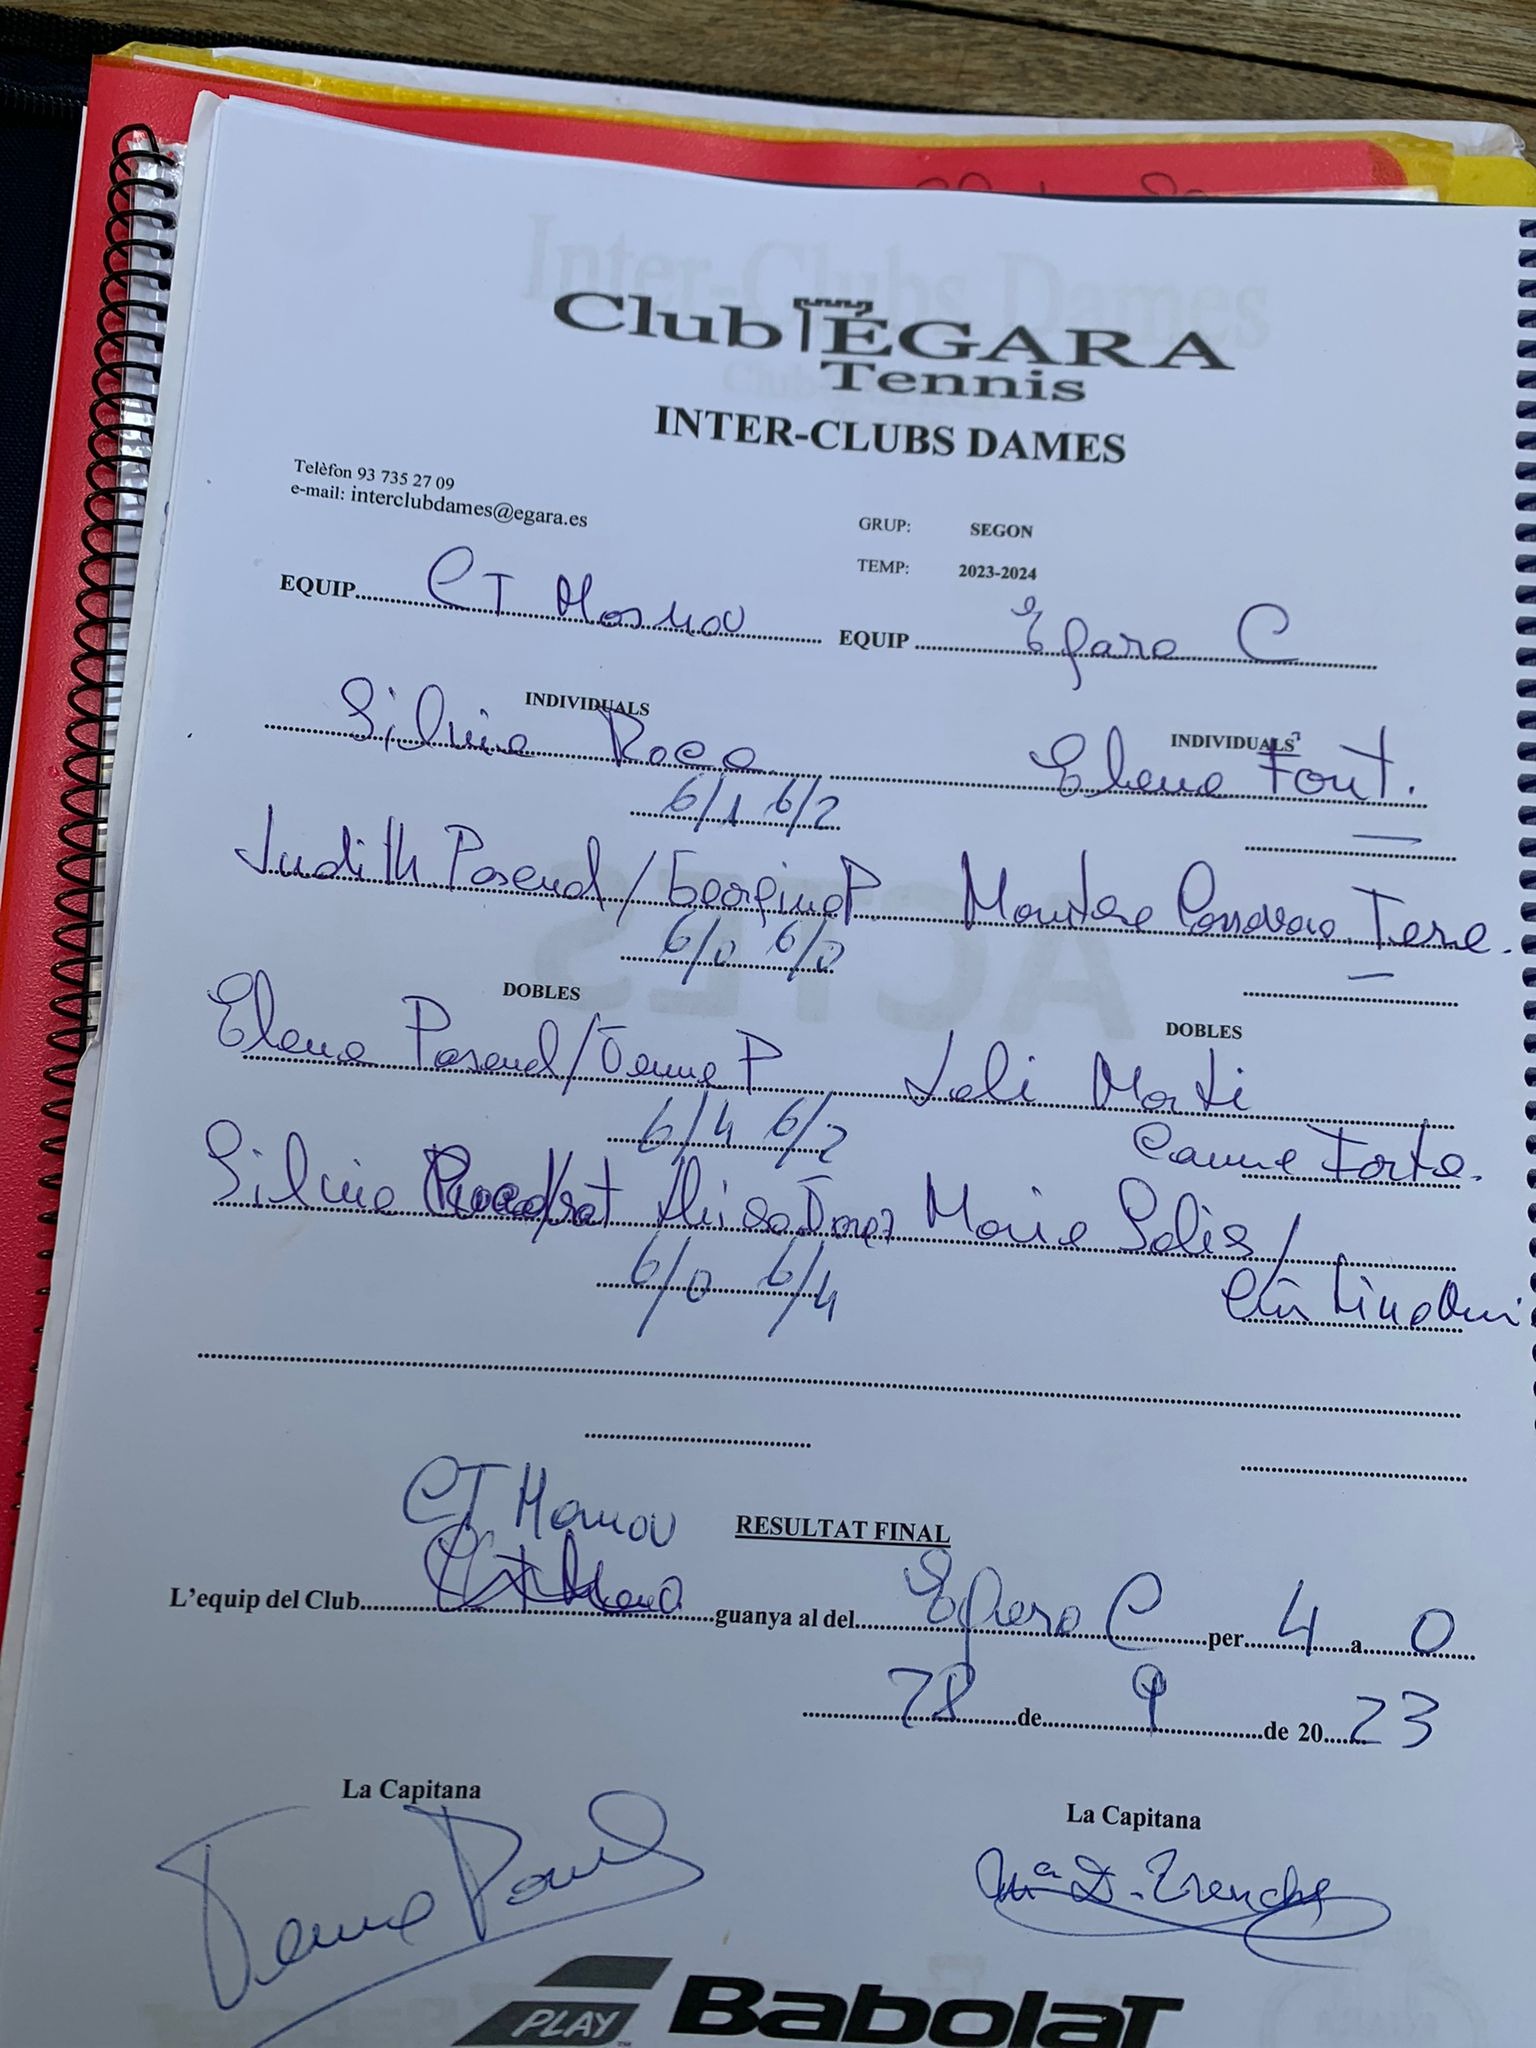 Club ÉGARA
Tennis
INTER-CLUBS DAMES
Telèfon 93 735 27 09
e-mail: interclubdames@egara.es
GRUP: SEGON
TEMP: 2023-2024
EQUIP CT Masnou EQUIP Egara C
INDIVIDUALS INDIVIDUALS
Silvia Roca Elena Font.
6/1 6/2 —
Judith Pascual / Georgina P. Montse Tere.
6/0 6/0 —
DOBLES DOBLES
Elena Pascual / P Loli Marti
6/4 6/2 Carme
Silvia Maria Solis /
6/0 6/4
CT Masnou
RESULTAT FINAL
L'equip del Club guanya al del Egara C per 4 a 0
28 de 9 de 2023
La Capitana La Capitana
Mª D. Trenchs
PLAY BabolaT